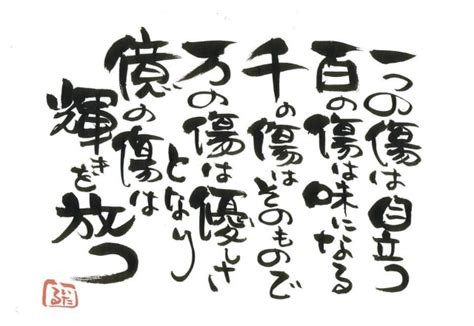 一つの傷は目立つ
百の傷は味になる
千の傷はそのもので
万の傷は優しさ
となり
億の傷は
輝きを放つ
いた
る